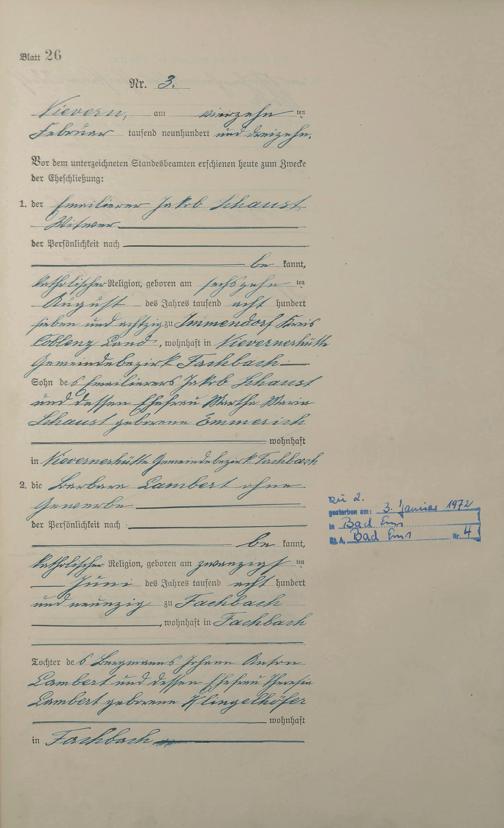 Blatt 26
Nr. 3.
Nievern, am vierzehn ten
Februar tausend neunhundert und dreizehn.
Vor dem unterzeichneten Standesbeamten erschienen heute zum Zwecke
der Eheschließung:
1. der Emailierer Jakob Schaust,
Witwer
der Persönlichkeit nach
be kannt,
katholischer Religion, geboren am sechszehn ten
August des Jahres tausend acht hundert
sieben und achtzig zu Immendorf Kreis
Coblenz Land, wohnhaft in Nievernerhütte
Gemeindebezirk Fachbach
Sohn des Emailierers Jakob Schaust
und dessen Ehefrau Martha Maria
Schaust geborene Emmerich
wohnhaft
in Nievernerhütte Gemeindebezirk Fachbach
2. die Barbara Lambert ohne
Gewerbe
der Persönlichkeit nach
be kannt,
katholischer Religion, geboren am zwanzigst en
Juni des Jahres tausend acht hundert
und neunzig zu Fachbach
, wohnhaft in Fachbach
Tochter des Bergmanns Johann Anton
Lambert und dessen Ehefrau Theresia
Lambert geborene Klingelhöfer
wohnhaft
in Fachbach
zu 2.
gestorben am: 3. Januar 1972
in Bad Ems
St. A. Bad Ems Nr. 4